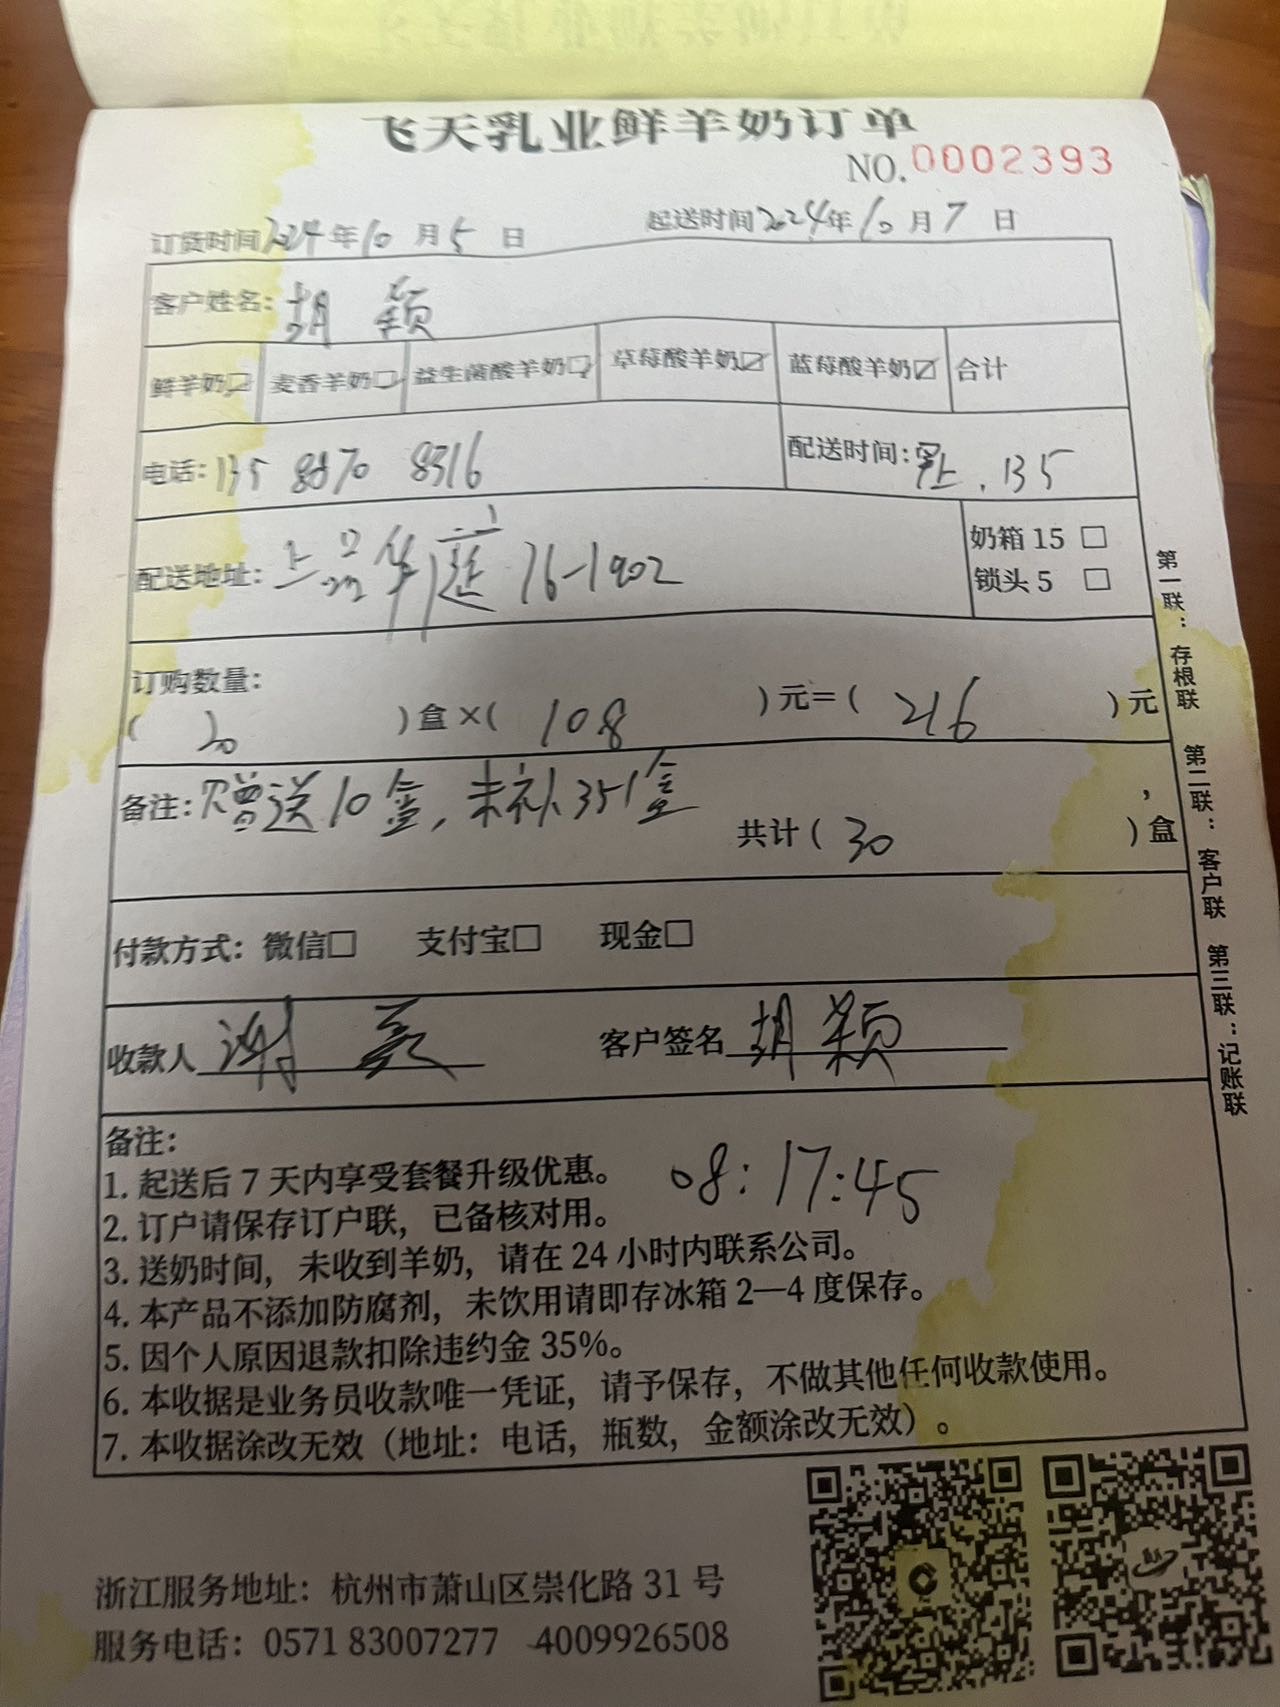 飞天乳业鲜羊奶订单
NO.0002393
订货时间2024年10月5日 起送时间2024年10月7日
客户姓名:胡颖
鲜羊奶☑ 麦香羊奶☐ 益生菌酸羊奶☐ 草莓酸羊奶☑ 蓝莓酸羊奶☑ 合计
电话:135 8870 8316 配送时间: 135
配送地址:上品华庭16-1902
奶箱 15 ☐
锁头 5 ☐
订购数量:
( 20 )盒×( 108 )元=( 216 )元
备注:赠送10盒,未补351盒 ,
共计( 30 )盒
付款方式:微信☐ 支付宝☐ 现金☐
收款人 谢 客户签名 胡颖
备注:
08:17:45
1. 起送后 7 天内享受套餐升级优惠。
2. 订户请保存订户联,已备核对用。
3. 送奶时间,未收到羊奶,请在 24 小时内联系公司。
4. 本产品不添加防腐剂,未饮用请即存冰箱 2—4 度保存。
5. 因个人原因退款扣除违约金 35%。
6. 本收据是业务员收款唯一凭证,请予保存,不做其他任何收款使用。
7. 本收据涂改无效(地址:电话,瓶数,金额涂改无效)。
第一联:存根联 第二联:客户联 第三联:记账联
浙江服务地址:杭州市萧山区崇化路 31 号
服务电话:0571 83007277 4009926508